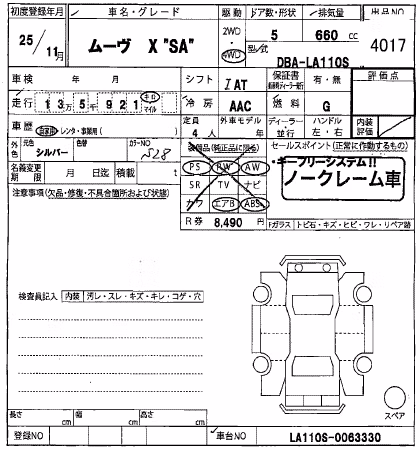 初度登録年月 車名・グレード 駆動 ドア数・形状 排気量 出品NO
25/11月 ムーヴ X "SA" 2WD 4WD 5 660 cc 4017
型式 DBA-LA110S
車検 年 月 シフト IAT 保証書 有・無 評価点
走行 13万5千921 キロ マイル 冷房 AAC 燃料 G 内装評価
車歴 自家用 レンタ・事業用( ) 定員 4人 外車モデル 年 ディーラー 並行 ハンドル 左・右
外色 元色 シルバー 色替 カラーNO S28 装備品(純正品に限る) セールスポイント(正常に作動するもの)
名義変更期限 月 日迄 積載 t PS PW AW ・キーフリーシステム!!
注意事項(欠品・修復・不具合箇所および状態) SR TV ナビ ノークレーム車
カワ エアB ABS
R券 8,490 円 Fガラス トビ石・キズ・ヒビ・ワレ・リペア跡
検査員記入 内装 汚レ・スレ・キズ・キレ・コゲ・穴
スペア
長さ cm 幅 cm 高さ cm
登録NO 車台NO LA110S-0063330